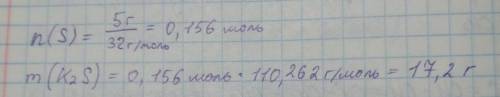 n(S) = 5г / 32 г/моль = 0,156 моль
m(K₂S) = 0,156 моль · 110,262 г/моль = 17,2 г